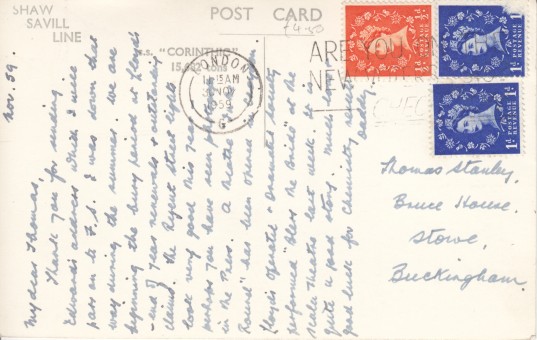 SHAW
SAVILL
LINE
POST CARD
£4.50
s.s. "CORINTHIC"
15,682 tons
LONDON
11.15 AM
NOV
1959
G
ARE YOU
NEW
½d
½d
1d
1d
POSTAGE
REVENUE
1d
1d
POSTAGE
REVENUE
Nov. 59.
My dear Thomas,
Thank you for sending
Edward's address which I will
pass on to F.S. I was down that
way during the summer. We are
beginning the busy period at Lloyd's
- end of year renewals &
claims! The Regent Street lights
look very good this year
perhaps you have seen
in the Press. A theatre
round" has been opened in
Lloyd's Operatic & Dramatic Society
performed "Bless the Bride" at the
Scala Theatre last week. In
quite a good story. Much love &
good luck for Chemistry
Daddy.
Thomas Stanley,
Bruce House,
Stowe,
Buckingham.